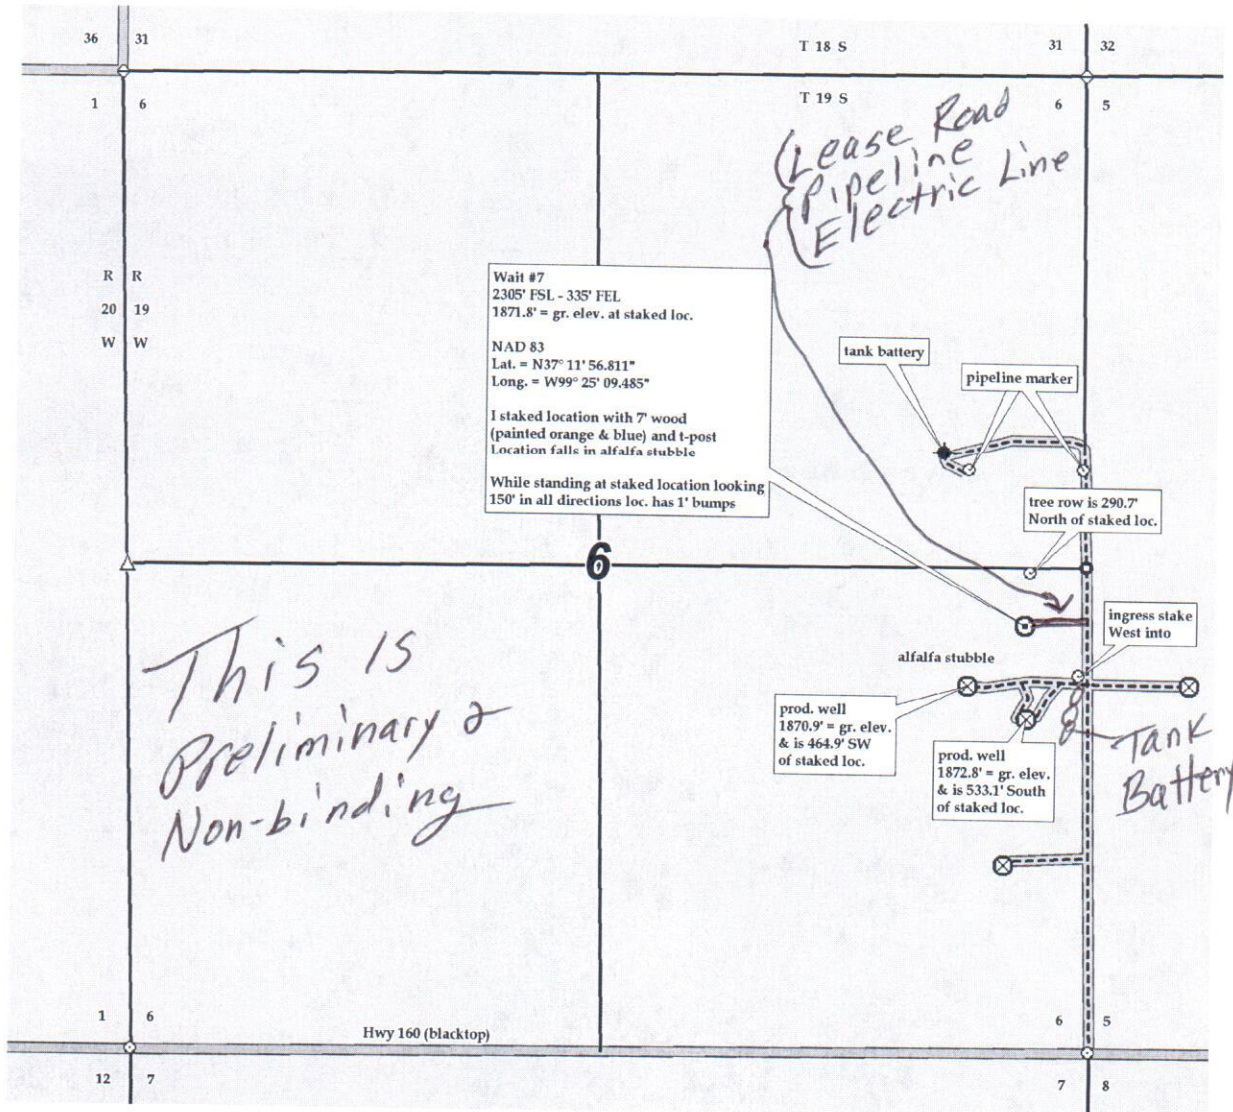 36 31
T 18 S
31 32
1 6
T 19 S
6 5
(Lease Road
Pipeline
Electric Line
R R
20 19
W W
Wait #7
2305' FSL - 335' FEL
1871.8' = gr. elev. at staked loc.
NAD 83
Lat. = N37° 11' 56.811"
Long. = W99° 25' 09.485"
I staked location with 7' wood
(painted orange & blue) and t-post
Location falls in alfalfa stubble
While standing at staked location looking
150' in all directions loc. has 1' bumps
tank battery
pipeline marker
tree row is 290.7'
North of staked loc.
6
ingress stake
West into
alfalfa stubble
prod. well
1870.9' = gr. elev.
& is 464.9' SW
of staked loc.
prod. well
1872.8' = gr. elev.
& is 533.1' South
of staked loc.
Tank
Battery
This is
Preliminary &
Non-binding
1 6
Hwy 160 (blacktop)
6 5
12 7
7 8